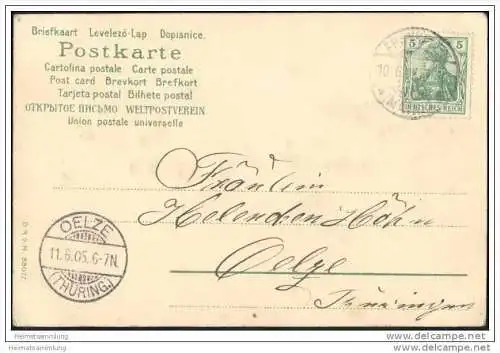 Briefkaart Levelező-Lap Dopisnice.
Postkarte
Cartolina postale Carte postale
Post card Brevkort Brefkort
Tarjeta postal Bilhete postal
ОТКРЫТОЕ ПИСЬМО WELTPOSTVEREIN
Union postale universelle
5 5
DEUTSCHES REICH
Fräulein
Helenchen Höhn
Oelze
Thüringen
OELZE
11.6.05. 6-7N.
(THÜRING.)
Heimatsammlung
Heimatsammlung
delcampe.net